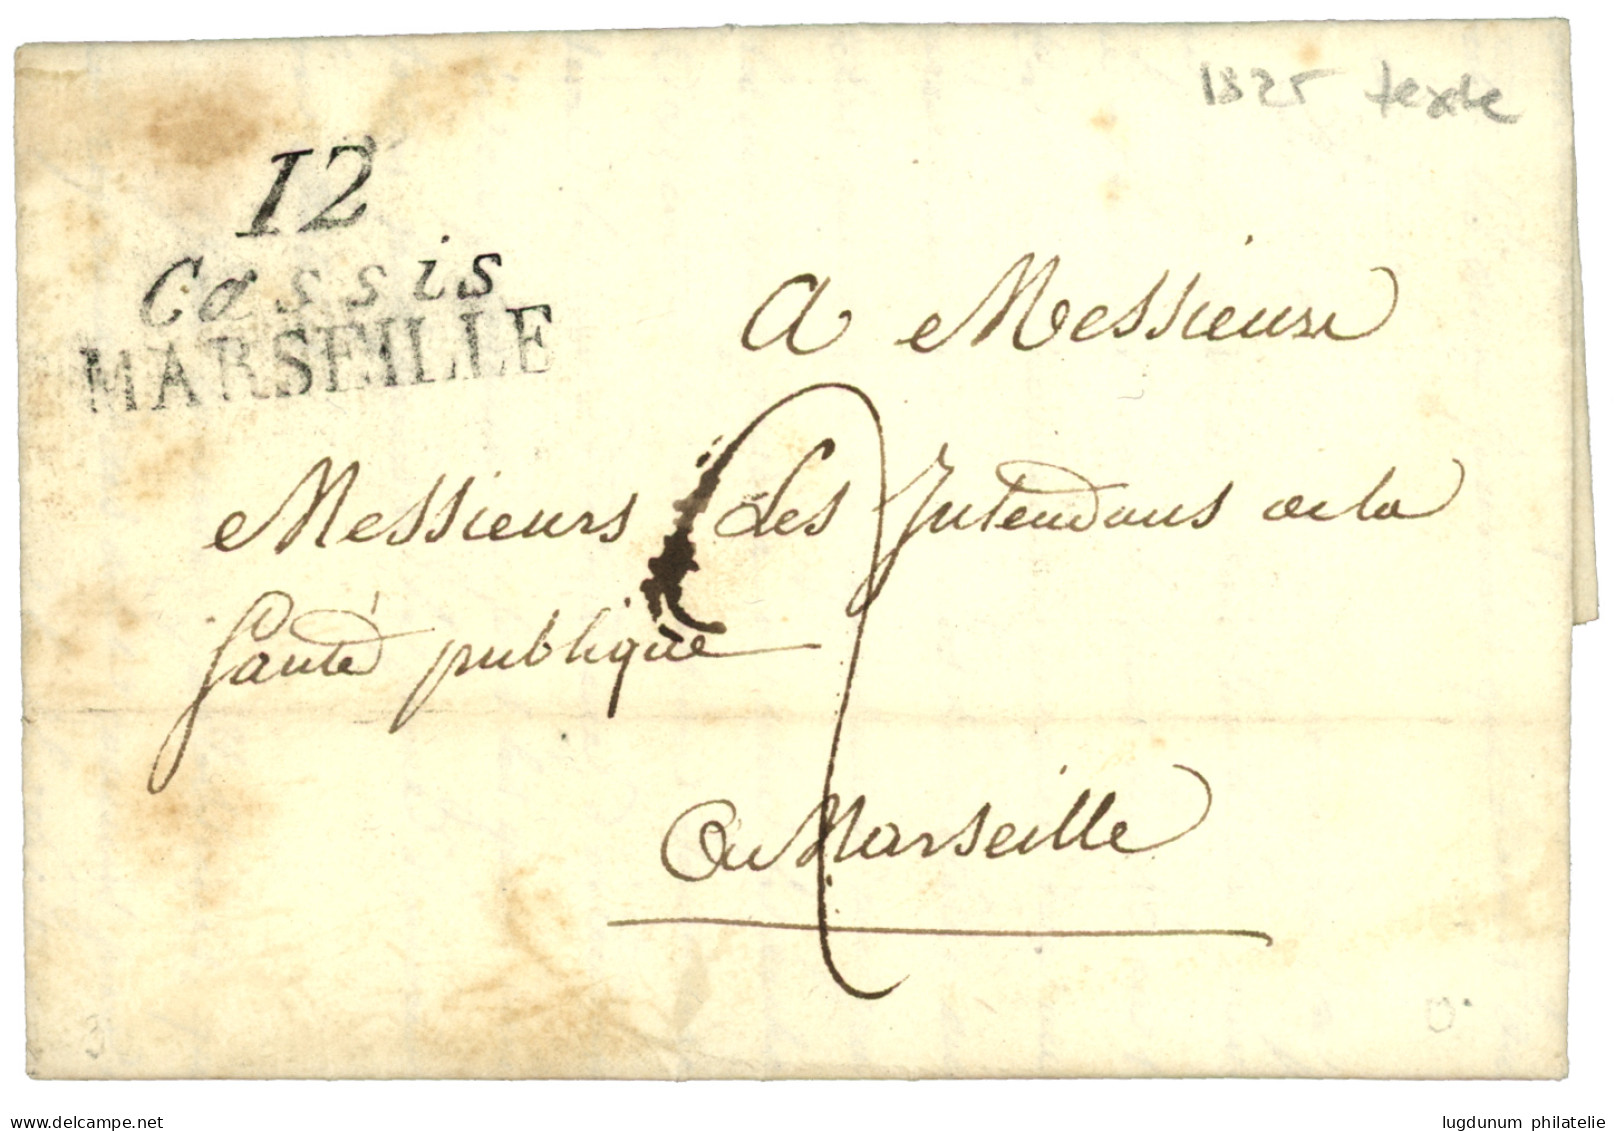 1825 texte
12
Cassis
MARSEILLE
A Messieurs
Messieurs Les Intendans de la
Santé publique
2
a Marseille
3
0
lugdunum philatelie